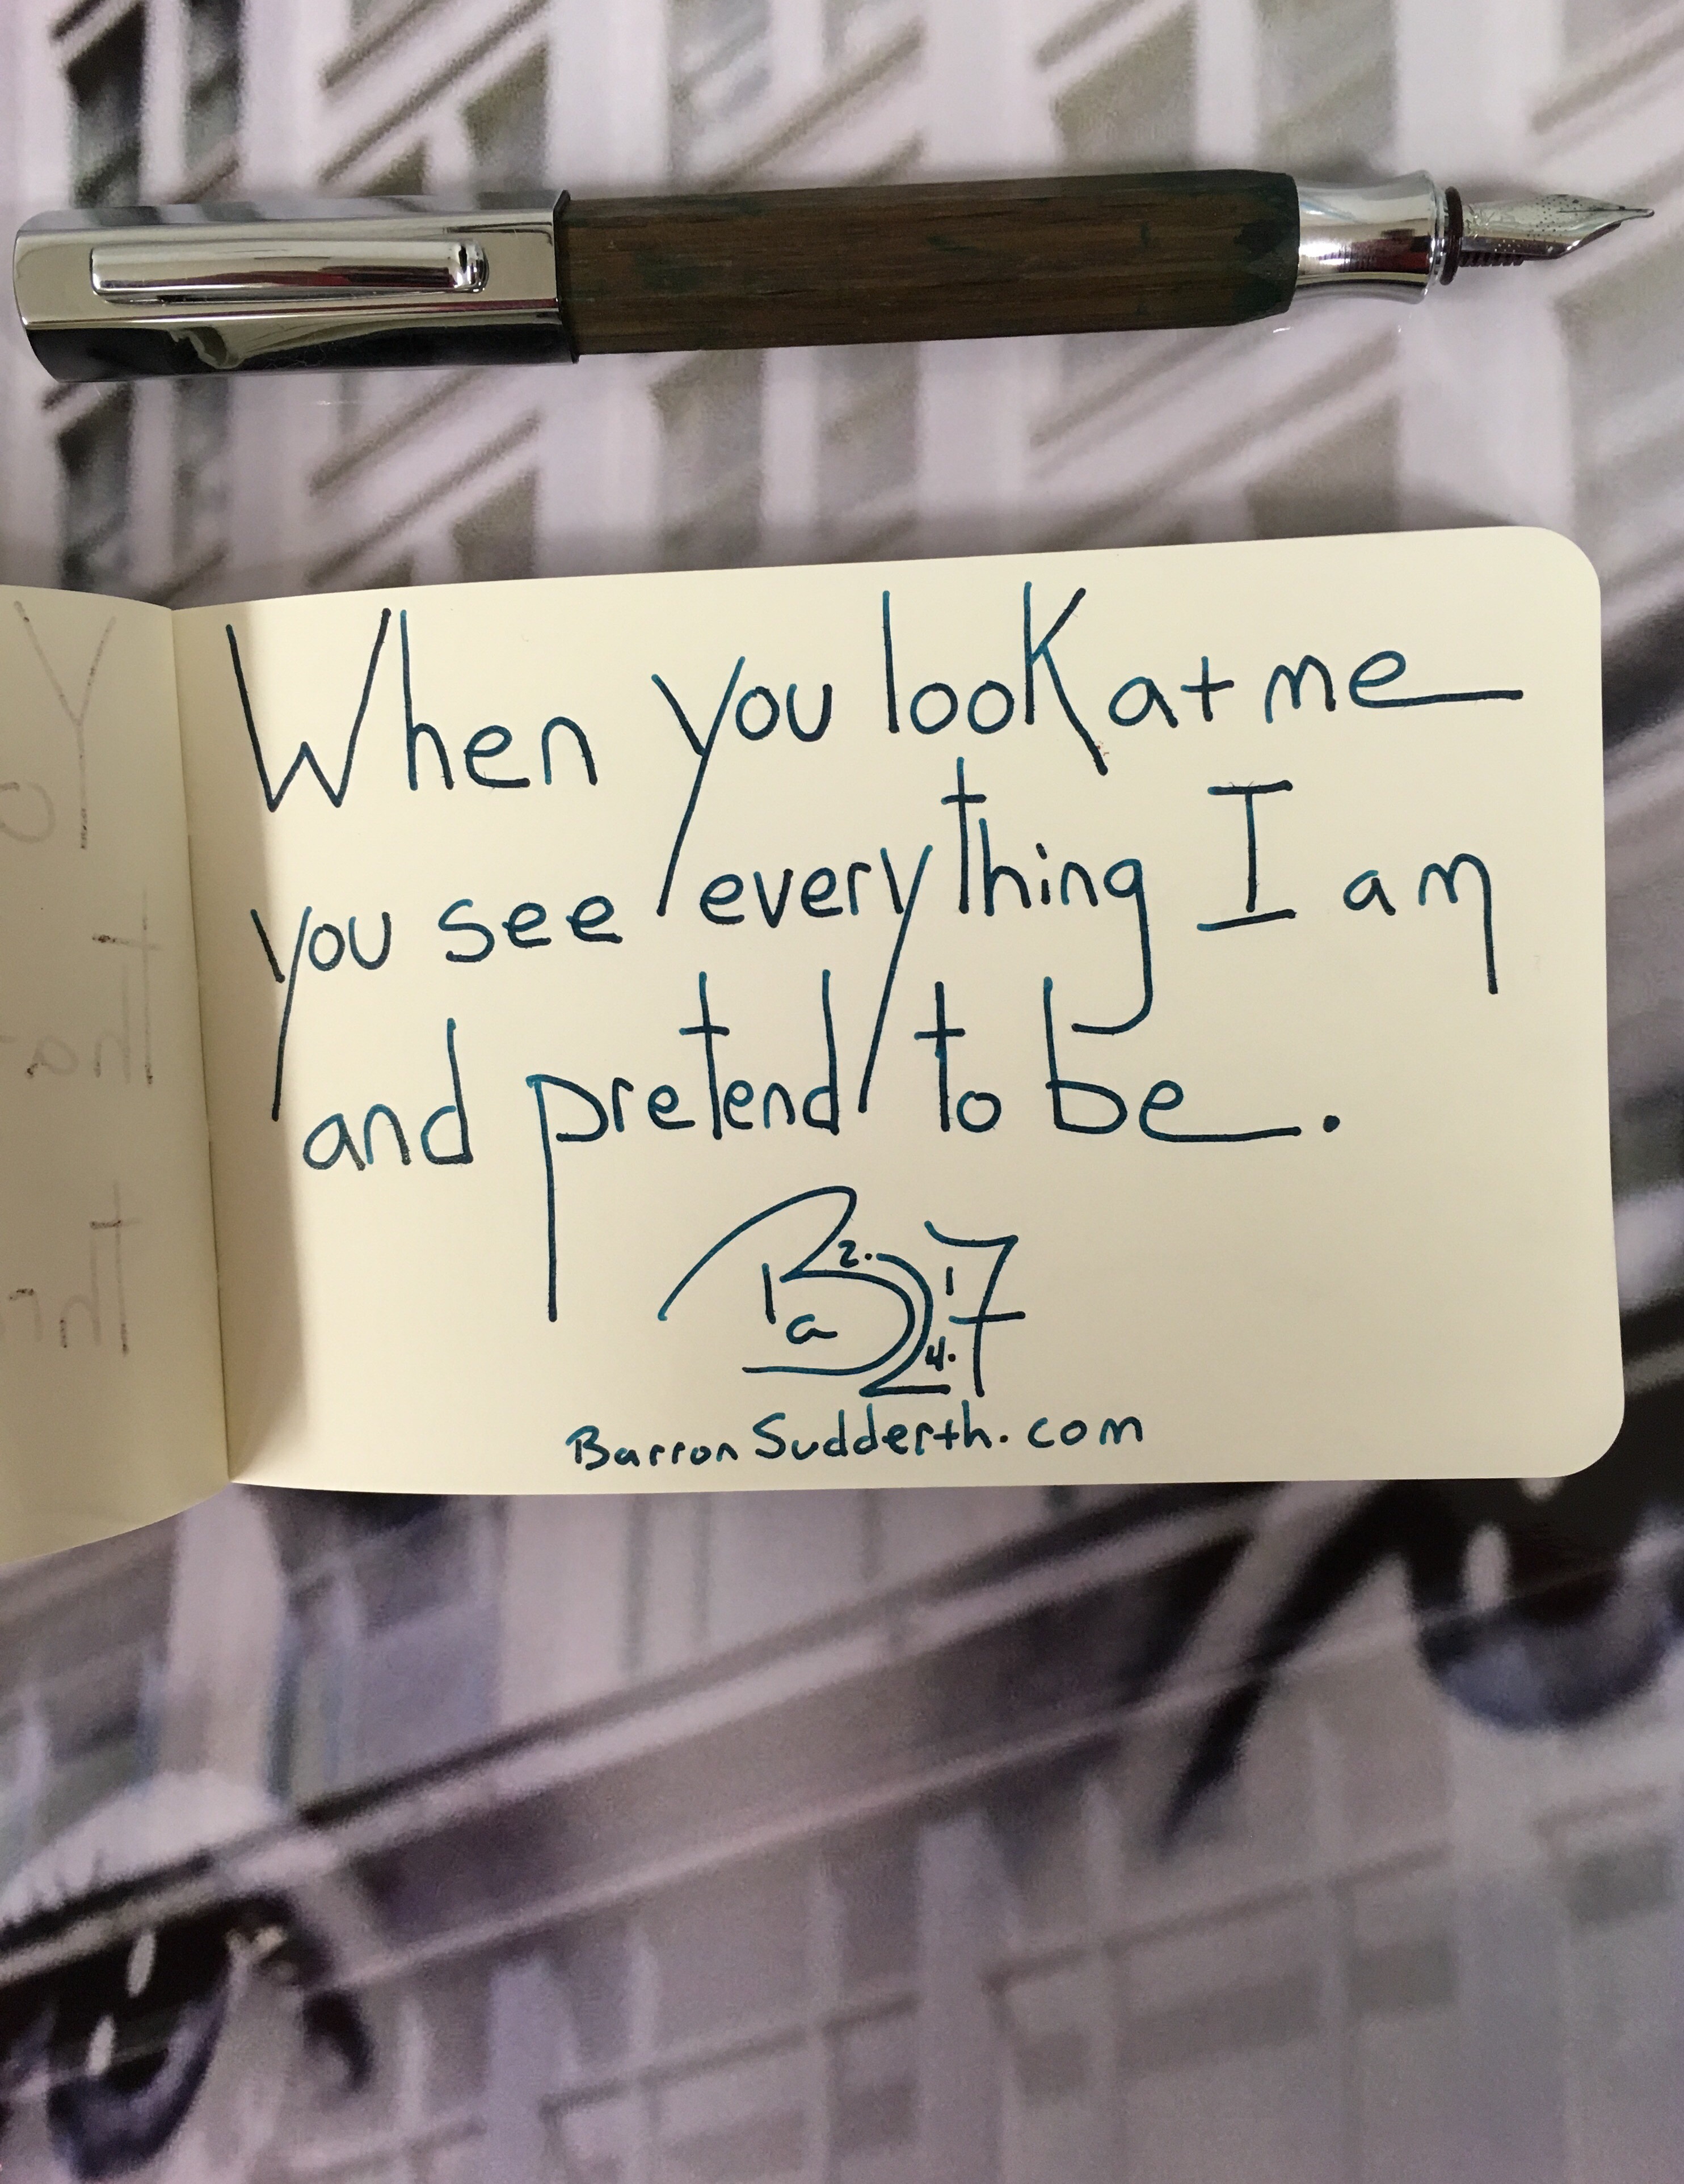 When you look at me
you see everything I am
and pretend to be.
BarronSudderth.com